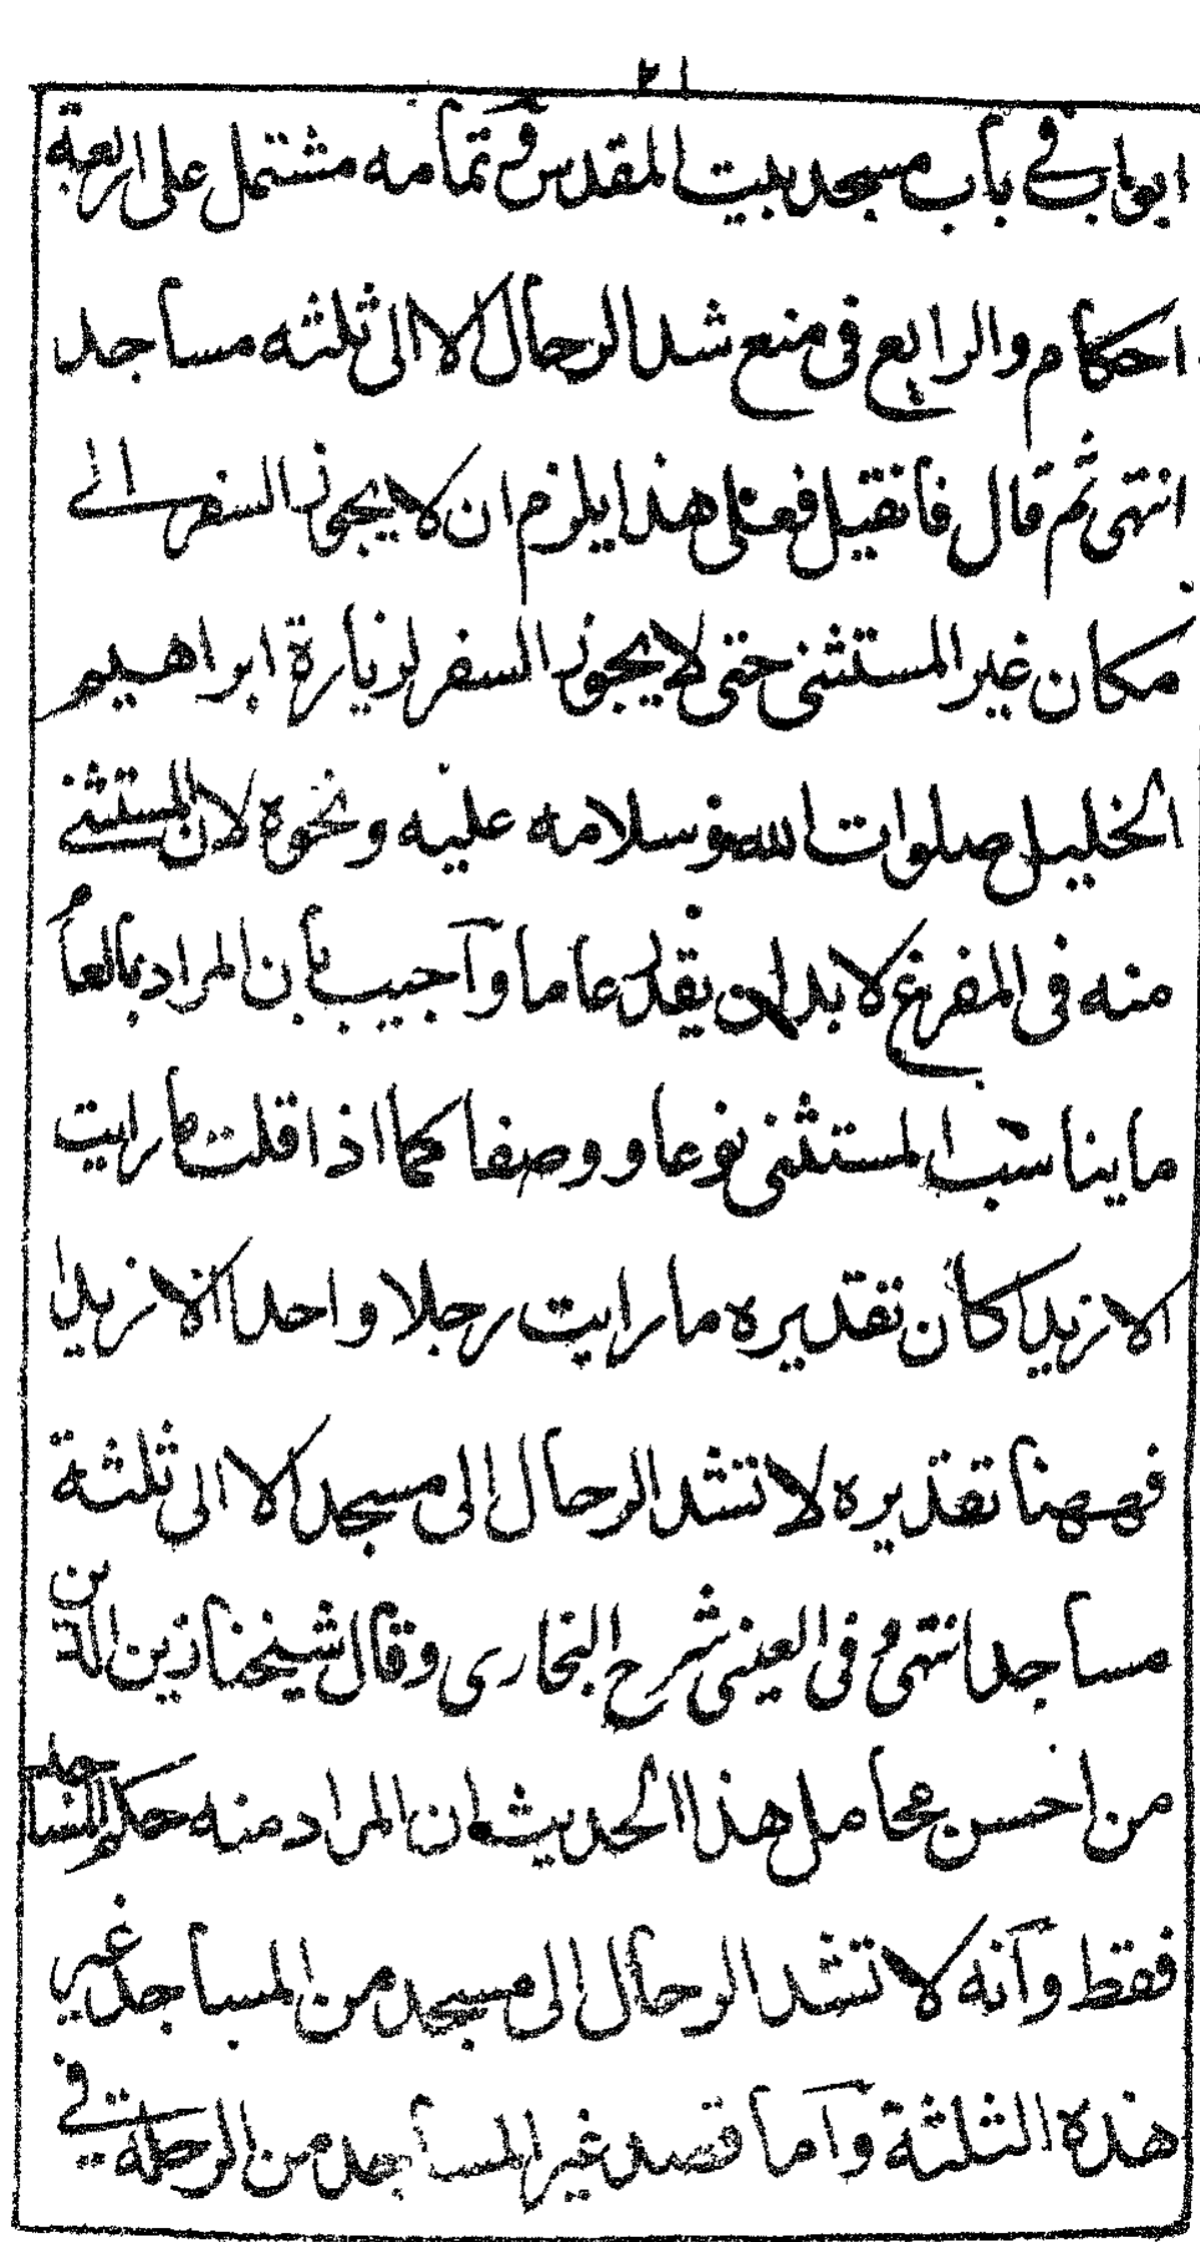 ٢١
ابواب فى باب مسجد بيت المقدس وتمامه مشتمل على اربعة
احكام والرابع فى منع شد الرحال الا الى ثلثه مساجد
انتهى ثم قال فانقيل فعلى هذا يلزم ان لا يجوز السفر الى
مكان غير المستثنى حتى لا يجوز السفر لزيارة ابراهيم
الخليل صلوات الله وسلامه عليه ونحوه لان المستثنى
منه فى المفرغ لا بد ان يقدر عاما وآجيب بان المراد بالعام
ما يناسب المستثنى نوعا و وصفا كما اذا قلت ما رايت
الا زيدا كان تقديره ما رايت رجلا واحدا الا زيدا
فههنا تقديره لا تشد الرحال الى مسجد الا الى ثلثة
مساجد انتهى وفى العينى شرح البخارى وقال شيخنا زين الدين
من احسن محامل هذا الحديث ان المراد منه حكم المساجد
فقط وآنه لا تشد الرحال الى مسجد من المساجد غير
هذه الثلثة وآما قصد غير المساجد من الرحلة فى